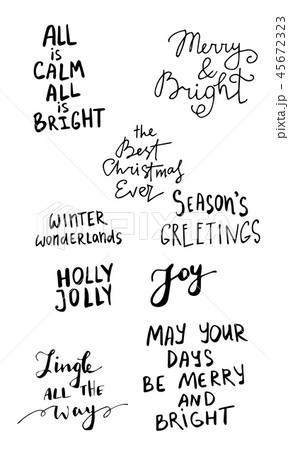 ALL
is
CALM
ALL
is
BRIGHT
Merry
&
Bright
the
Best
Christmas
Ever
SEASON'S
GREETINGS
WINTER
Wonderlands
HOLLY
JOLLY
Joy
Jingle
ALL THE
Way
MAY YOUR
DAYS
BE MERRY
AND
BRIGHT
PIXTA
pixta.jp - 45672323